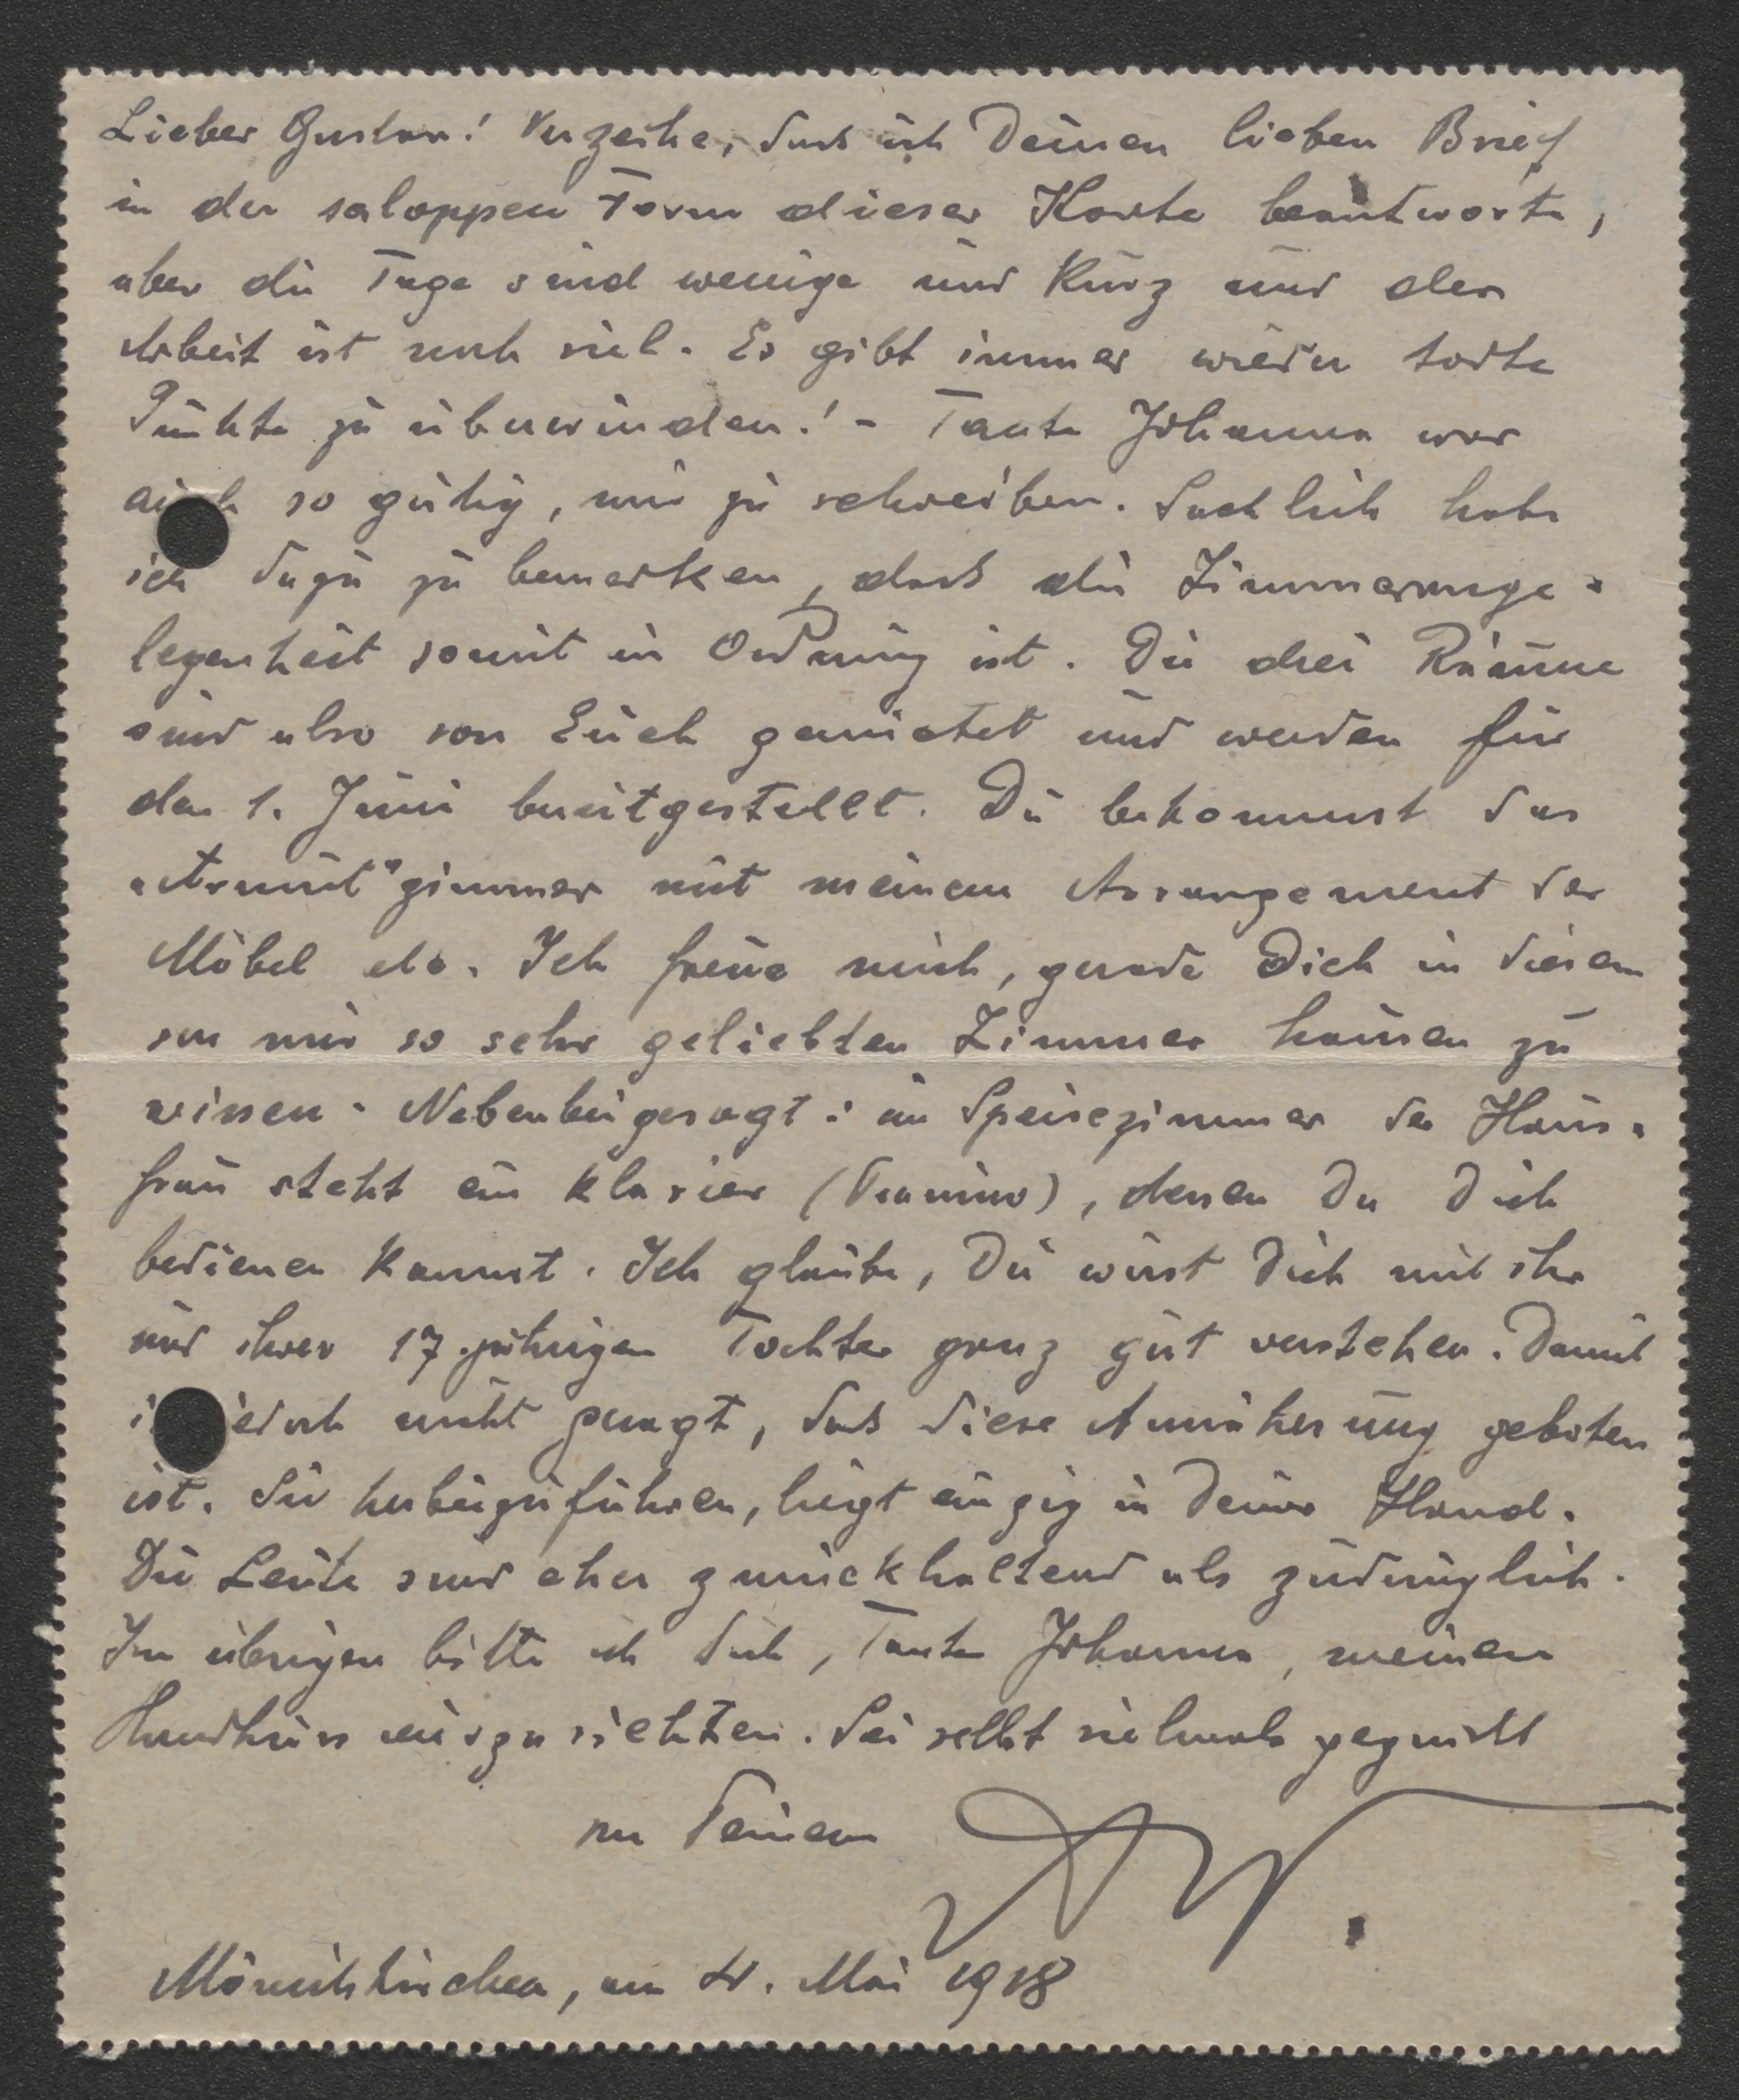 Lieber Gustav! Verzeihe, dass ich Deinen lieben Brief
in der saloppen Form dieser Karte beantworte,
aber die Tage sind wenige und kurz und der
Arbeit ist noch viel. Es gibt immer wieder tote
Punkte zu überwinden! – Tante Johanna war
auch so gütig, mir zu schreiben. Sachlich habe
ich dazu zu bemerken, dass die Zimmerange-
legenheit somit in Ordnung ist. Die drei Räume
sind also von Euch gemietet und werden für
den 1. Juni bereitgestellt. Du bekommst das
„Armut"zimmer mit meinem Arrangement der
Möbel etc. Ich freue mich, gerade Dich in diesem
von mir so sehr geliebten Zimmer hausen zu
wissen. Nebenbeigesagt: im Speisezimmer der Haus-
frau steht ein Klavier (Pianino), dessen Du Dich
bedienen kannst. Ich glaube, Du wirst Dich mit ihr
und ihrer 17 jährigen Tochter ganz gut verstehen. Damit
jedoch nicht gesagt, dass diese Annäherung geboten
ist. Sie herbeizuführen, liegt einzig in Deiner Hand.
Die Leute sind eher zurückhaltend als zudringlich.
Im übrigen bitte ich Dich, Tante Johanna, meinen
Handkuss auszurichten. Sei selbst vielmals gegrüsst
von Deinem
Mönichkirchen, am 4. Mai 1918